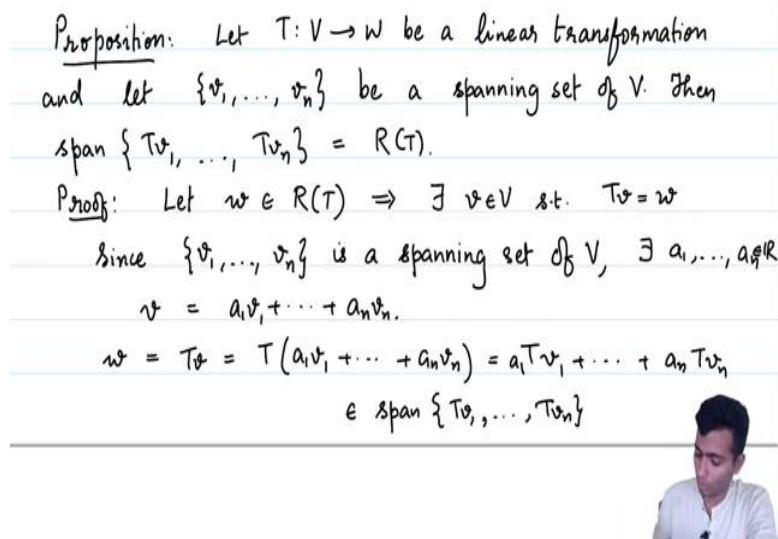 Proposition: Let T: V → W be a linear transformation
and let {v₁, ..., vₙ} be a spanning set of V. Then
span {Tv₁, ..., Tvₙ} = R(T).
Proof: Let w ∈ R(T) ⇒ ∃ v∈V s.t. Tv = w
Since {v₁, ..., vₙ} is a spanning set of V, ∃ a₁, ..., aₙ∈ℝ
v = a₁v₁ + ··· + aₙvₙ.
w = Tv = T(a₁v₁ + ··· + aₙvₙ) = a₁Tv₁ + ··· + aₙTvₙ
∈ span {Tv₁, ..., Tvₙ}